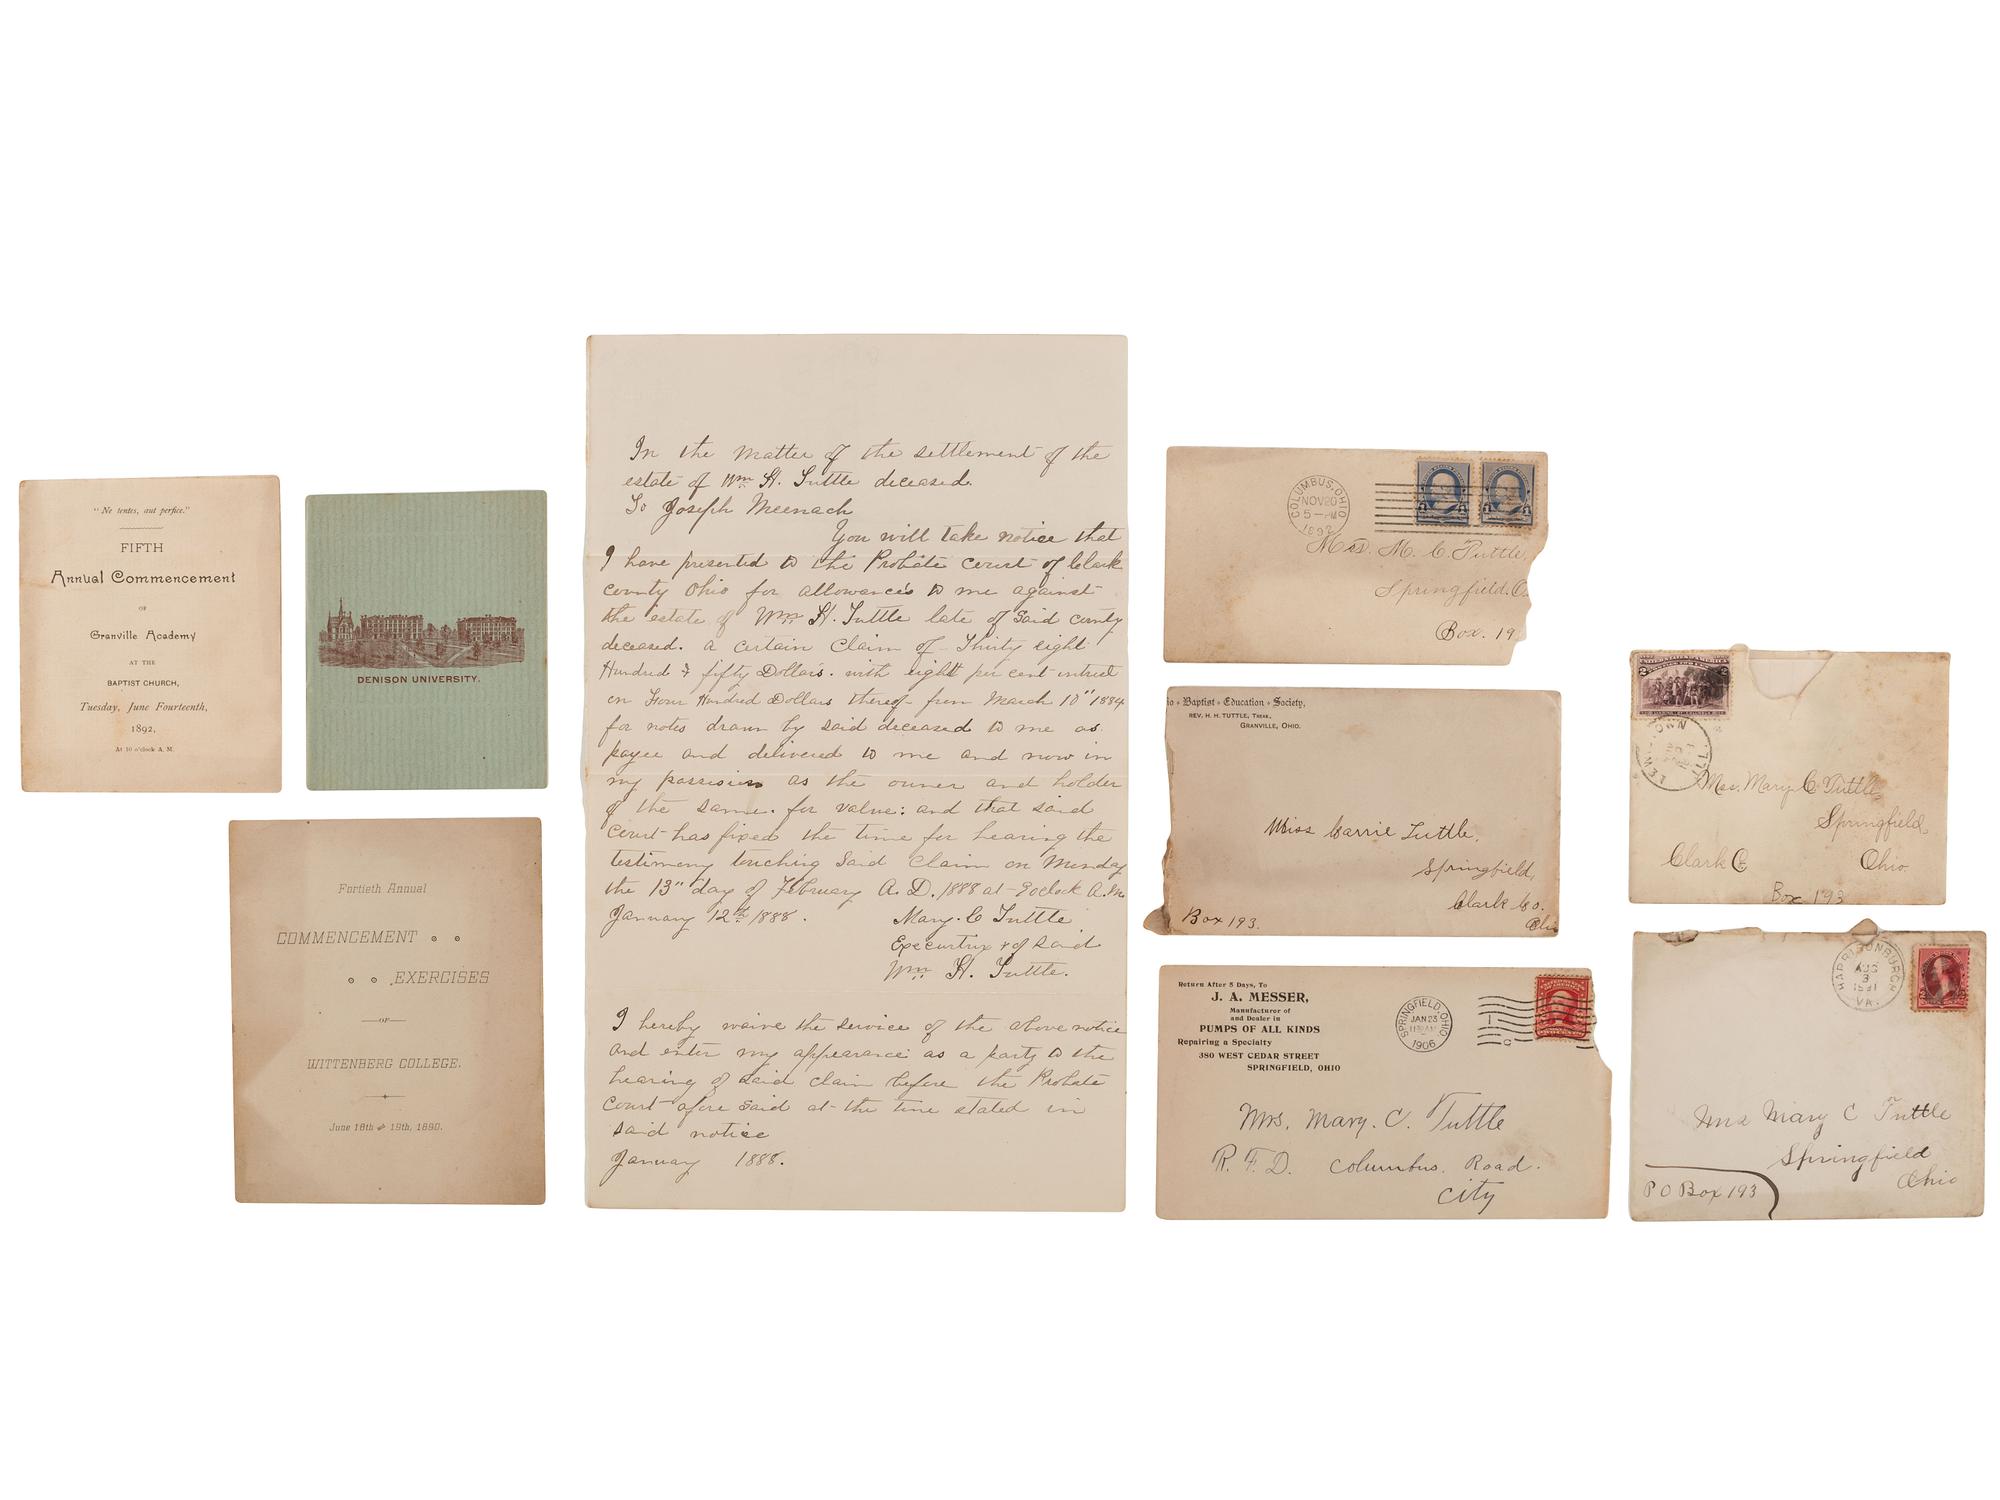 "Ne tentes, aut perfice."
FIFTH
Annual Commencement
OF
Granville Academy
AT THE
BAPTIST CHURCH,
Tuesday, June Fourteenth,
1892,
At 10 o'clock A. M.
DENISON UNIVERSITY.
Fortieth Annual
COMMENCEMENT
EXERCISES
OF
WITTENBERG COLLEGE.
June 18th and 19th, 1890.
In the matter of the settlement of the
estate of Wm H. Tuttle deceased.
To Joseph Meenach
You will take notice that
I have presented to the Probate court of Clark
county Ohio for allowances to me against
the estate of Wm H. Tuttle late of Said county
deceased. a certain claim of Thirty eight
Hundred & fifty Dollars. with eight per cent intrest
on Four Hundred Dollars thereof from March 10" 1884
for notes drawn by said deceased to me as
payee and delivered to me and now in
my possesion as the owner and holder
of the same. for value: and that said
court has fixed the time for hearing the
testimony touching Said claim on Monday
the 13" day of February A. D. 1888 at 9 oclock A.M.
January 12th 1888.
Mary. C Tuttle
Executrix of Said
Wm H. Tuttle.
I hereby waive the service of the above notice
and enter my appearance as a party to the
hearing of said claim before the Probate
court afore said at the time stated in
said notice
January 1888.
COLUMBUS, OHIO
NOV 20
5 - PM
1892
Mrs. M. C. Tuttle,
Springfield. O.
Box. 19
io Baptist Education Society,
REV. H. H. TUTTLE, TREAS.,
GRANVILLE, OHIO.
Miss Carrie Tuttle,
Springfield,
Clark Co.
Ohio
Box 193.
Return After 5 Days, To
J. A. MESSER,
Manufacturer of
and Dealer in
PUMPS OF ALL KINDS
Repairing a Specialty
380 WEST CEDAR STREET
SPRINGFIELD, OHIO
SPRINGFIELD, OHIO
JAN 23
1906
Mrs. Mary. C. Tuttle
R. F. D. Columbus. Road.
City
ILL.
Mrs. Mary C Tuttle,
Springfield,
Clark Co Ohio
Box 193
HARRISONBURG
AUG
3
1891
VA.
Mrs Mary C Tuttle
Springfield
Ohio
P O Box 193